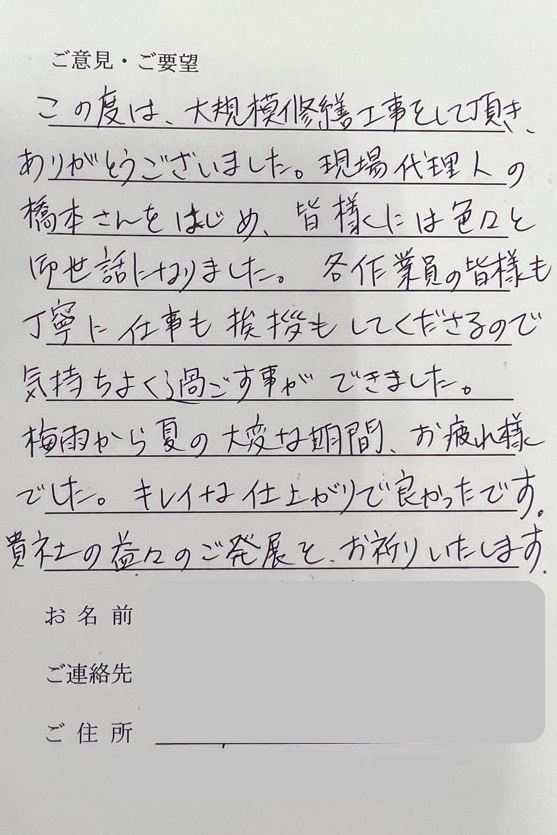 ご意見・ご要望
この度は、大規模修繕工事をして頂き、
ありがとうございました。現場代理人の
橋本さんをはじめ、皆様には色々と
御世話になりました。各作業員の皆様も
丁寧に仕事も挨拶もしてくださるので
気持ちよく過ごす事ができました。
梅雨から夏の大変な期間、お疲れ様
でした。キレイな仕上がりで良かったです。
貴社の益々のご発展を、お祈りいたします。
お名前
ご連絡先
ご住所